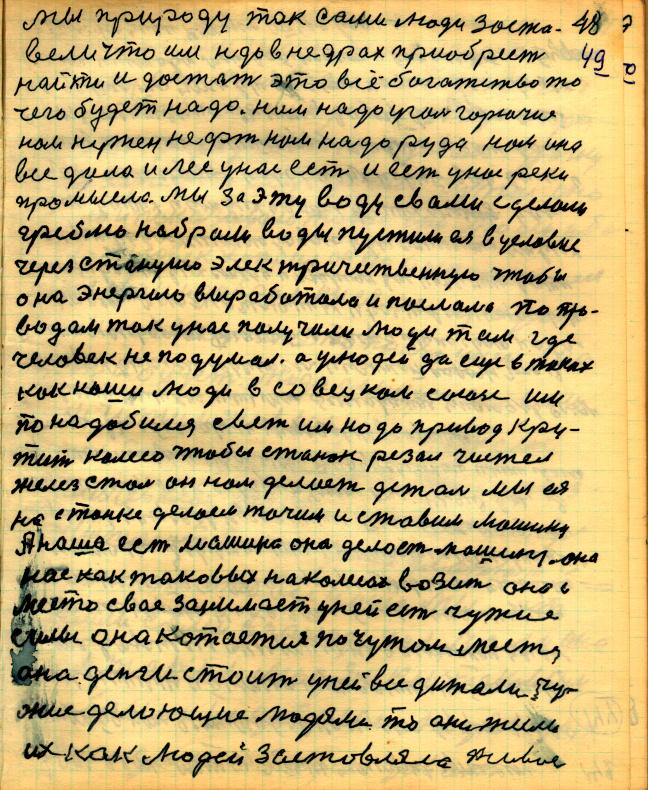 мы природу так сами люди заста- 48
вели что им н до в недрах приобрест 49
найти и достат это всё богатство то
чего будет надо. нам надо угол горюче
нам нужен нефт нам надо руда нам она
все дала и лес унас ест и ест унас реки
промысла. мы за эту воду свами сделали
греблю набрали воды пустили ея в условие
через станцию электричественную чтобы
она энергию выработала и послала по про-
водам так унас получили люди там где
человек не подумал. а улюдей да еще в таких
как наши люди в совецком союзе им
понадобился свет им надо привод кру-
тит колесо чтобы станок резал чистел
желез стал он нам делает детал мы ея
на станке делаем точим и ставим машину
А наша ест машина она делает машину. она
нас как таковых на колесах возит она
место свае занимает уней ест чужие
силы она котается по чужом место
она денги стоит уней все детали чу-
жие делающие людями. то они жили
их как людей заставляла живое